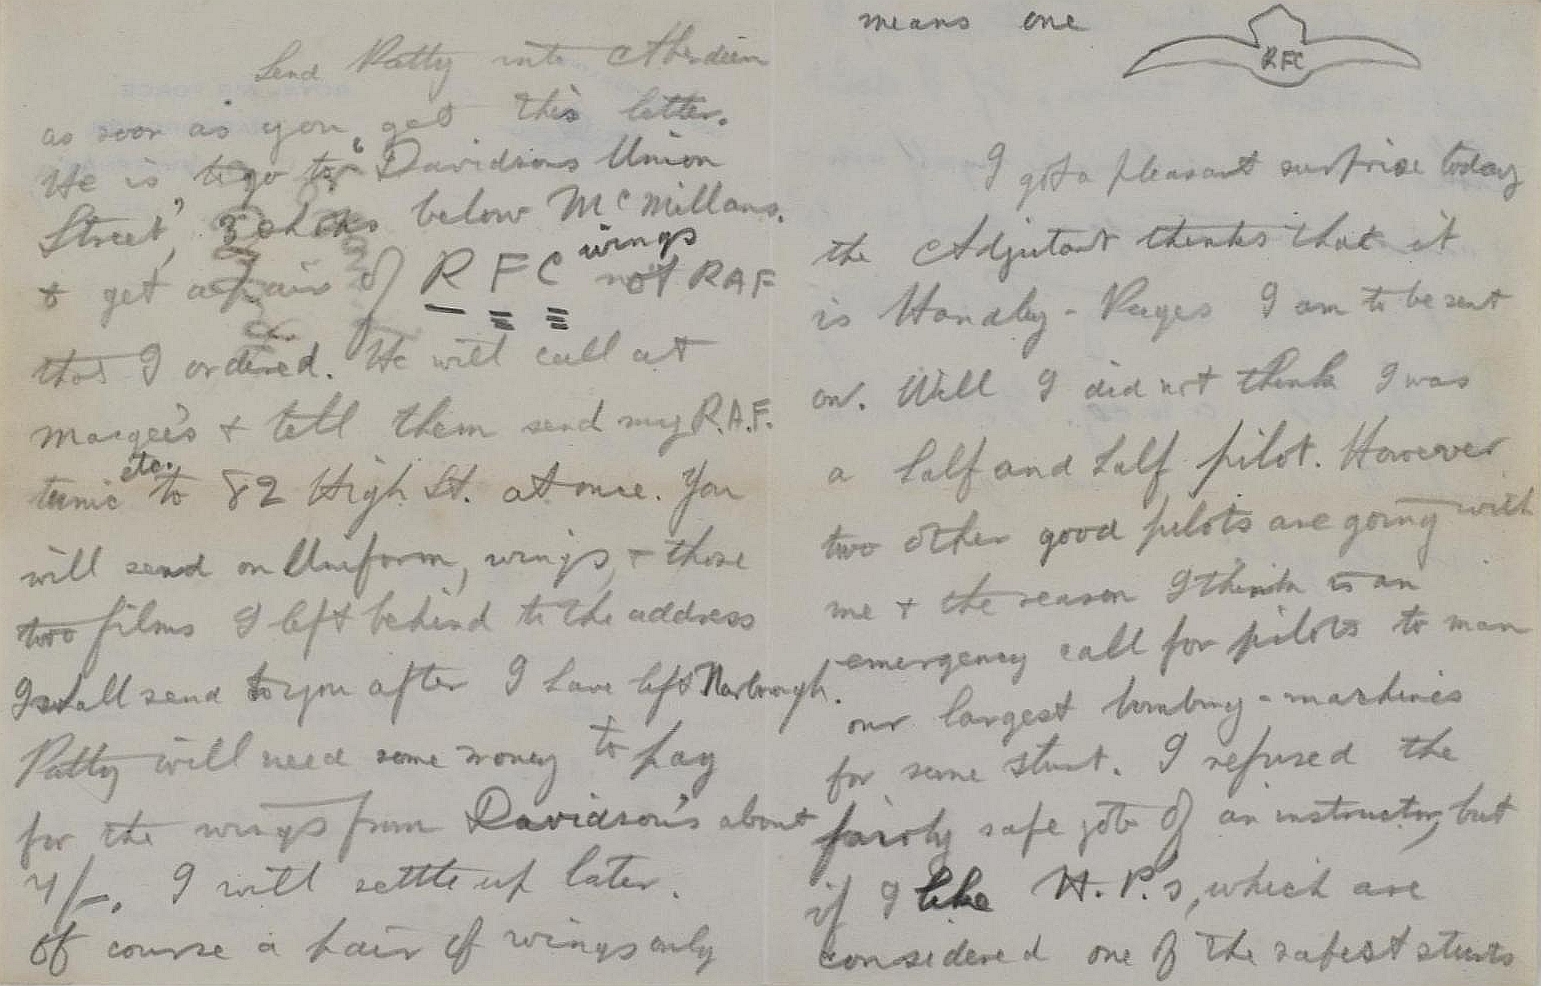 Send Patty into Aberdeen
as soon as you get this letter.
He is to go to "Davidsons Union
Street", 3 below McMillans.
& get a pair of RFC wings not RAF
that I ordered. He will call at
Margee's & tell them send my R.A.F.
tunic etc. to 82 High St. at once. You
will send on Uniform, wings, & those
two films I left behind to the address
I shall send to you after I have left Narborough.
Patty will need some money to pay
for the wings from Davidson's about
4/-. I will settle up later.
Of course a pair of wings only
means one
RFC
I got a pleasant surprise today
the Adjutant thinks that it
is Handley-Pages I am to be sent
on. Well I did not think I was
a half and half pilot. However
two other good pilots are going with
me & the reason I think is an
emergency call for pilots to man
our largest bombing-machines
for some stunt. I refused the
fairly safe job of an instructor, but
if I like H.P.s, which are
considered one of the safest stunts